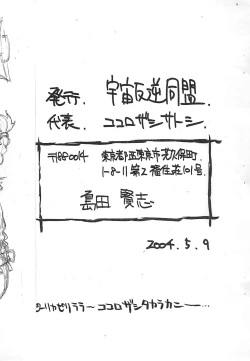 発行. 宇宙反逆同盟.
代表. ココロザシサトシ.
〒188-0014 東京都西東京市芝久保町
1-8-11 第2福住荘101号
島田 賢志
2004.5.9
ココロザシタカラカニー…